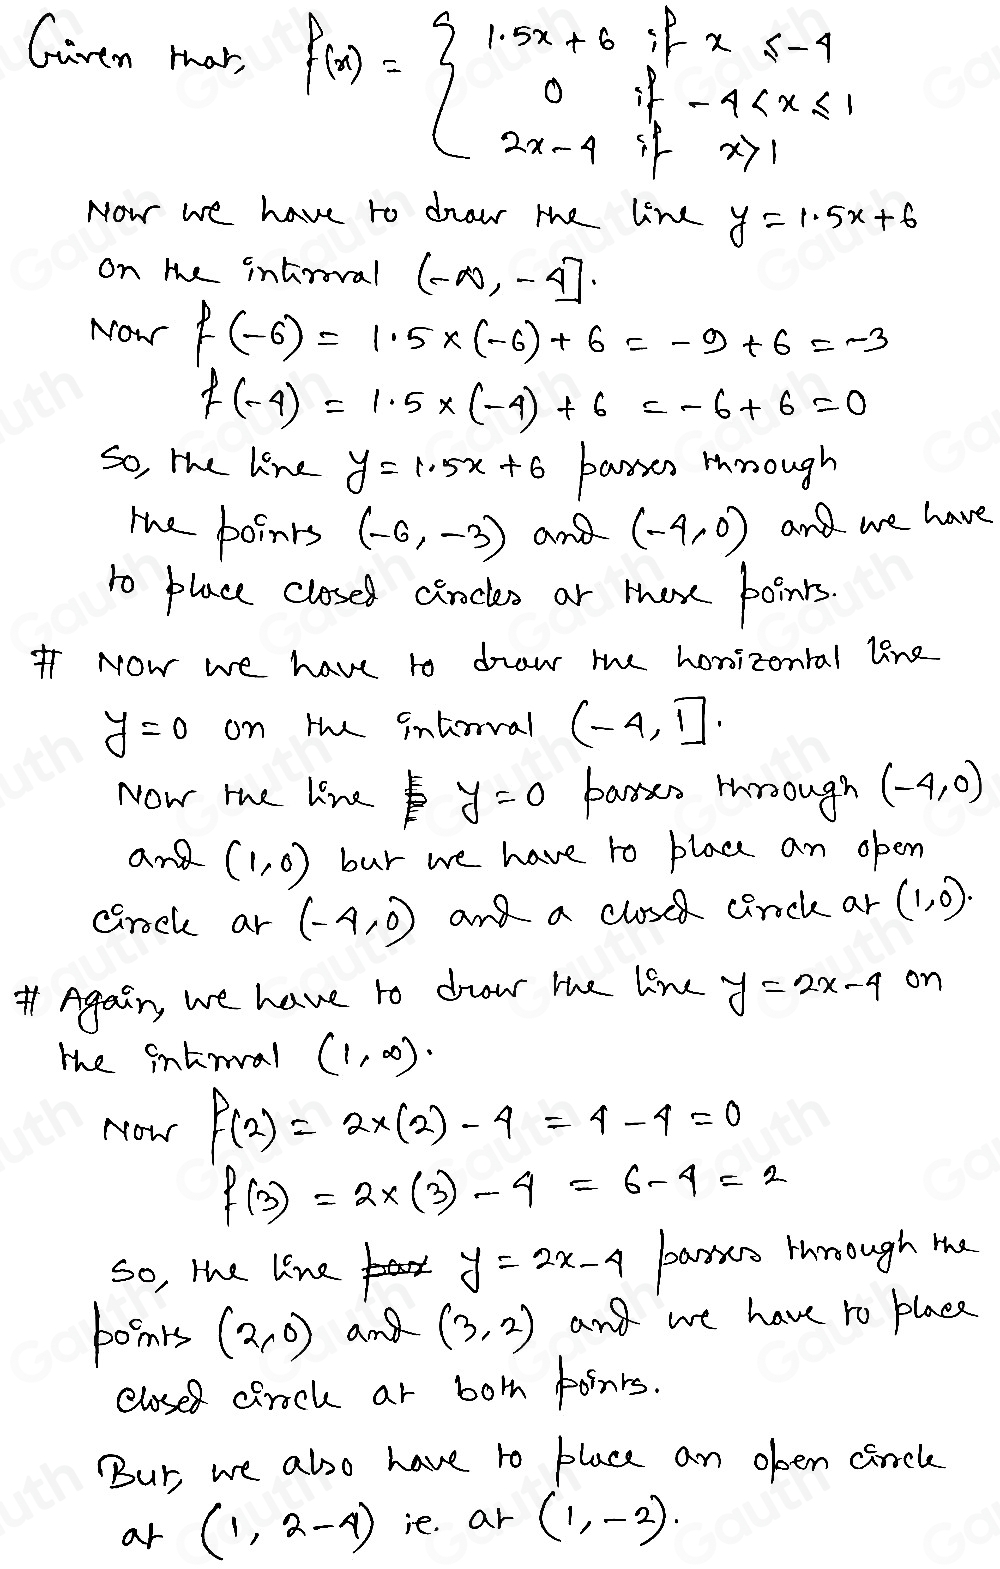 Given that, f(x) = { 1.5x + 6 if x ≤ -4
0 if -4 < x ≤ 1
2x - 4 if x > 1
Now we have to draw the line y = 1.5x + 6
on the interval (-∞, -4].
Now f(-6) = 1.5 × (-6) + 6 = -9 + 6 = -3
f(-4) = 1.5 × (-4) + 6 = -6 + 6 = 0
So, the line y = 1.5x + 6 passes through
the points (-6, -3) and (-4, 0) and we have
to place closed circles at these points.
# Now we have to draw the horizontal line
y = 0 on the interval (-4, 1].
Now the line y = 0 passes through (-4, 0)
and (1, 0) but we have to place an open
circle at (-4, 0) and a closed circle at (1, 0).
# Again, we have to draw the line y = 2x - 4 on
the interval (1, ∞).
Now f(2) = 2×(2) - 4 = 4 - 4 = 0
f(3) = 2×(3) - 4 = 6 - 4 = 2
So, the line y = 2x - 4 passes through the
points (2, 0) and (3, 2) and we have to place
closed circle at both points.
But, we also have to place an open circle
at (1, 2-4) ie. at (1, -2).